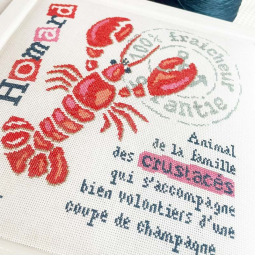 Homard
100% fraîcheur
garantie
Animal
de la famille
des crustacés
qui s'accompagne
bien volontiers d'une
coupe de champagne